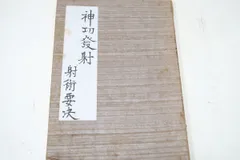 神功發射
射術要決